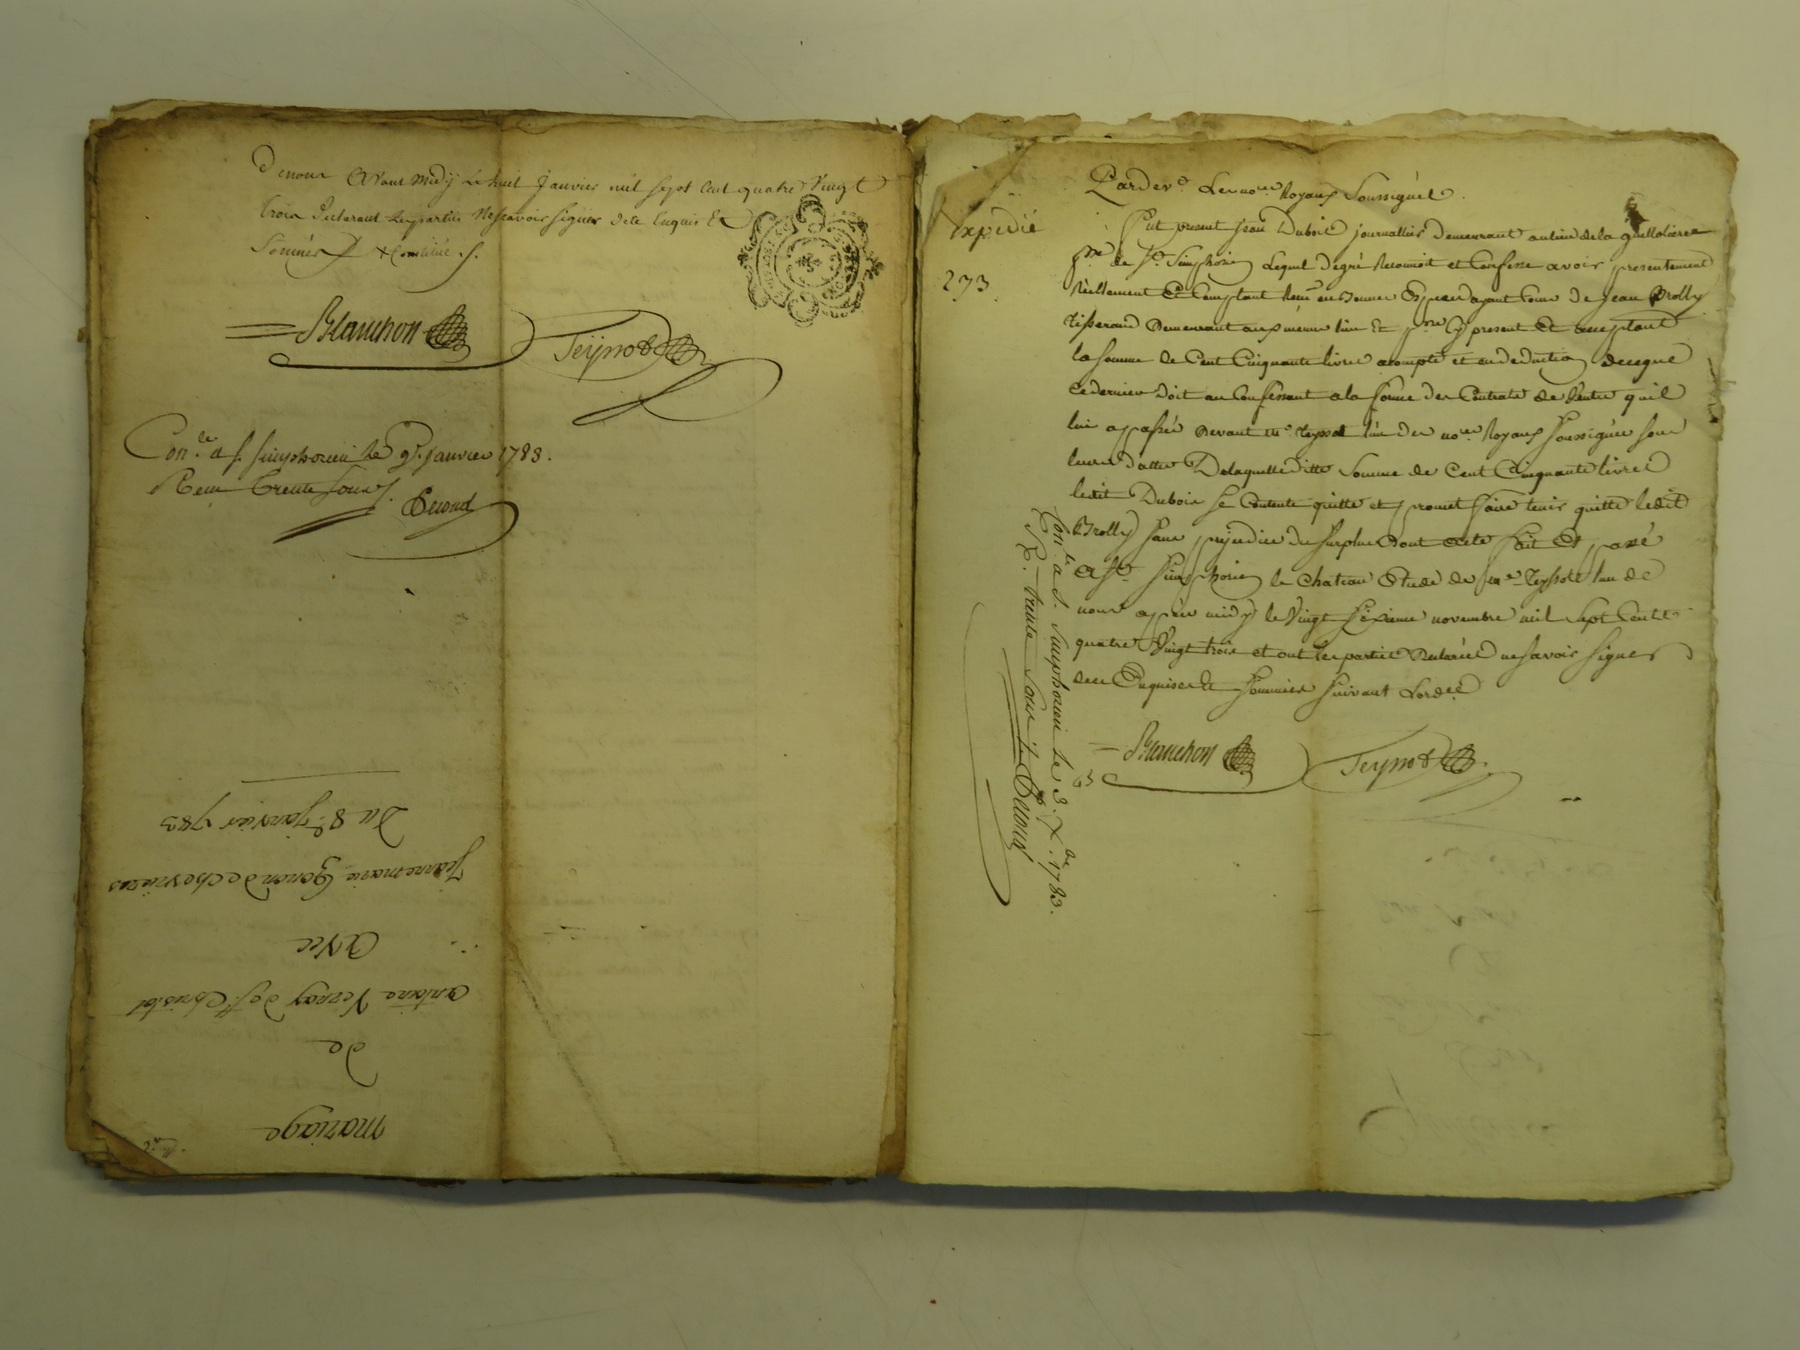 de nous avant midy le huit janvier mil sept cent quatre vingt
trois declarant les parties ne scavoir signer de ce enquis et
sommés
Blanchon Teyssot
Con.le a S. Simphorien le 9.e janvier 1783.
Reçu trente sous
mariage
de
antoine Vernay de St Christot
avec
jeanne marie de chevrieres
du 8.e janvier 1783
Expedié
273
Pardev.t les no.res Royaux Soussignés
Fut present jean Dubois journallier demeurant au lieu de la
p.sse de S.t Simphorien lequel de gré reconnoit et confesse avoir presentement
réellement et comptant reçu en bonnes espèces ayant cours de jean Brolly
tisserand demeurant au même lieu et p.sse cy present et acceptant
la somme de cent cinquante livres acompte et en deduction de ce que
ce dernier doit au confessant a la forme des contrats de vente qu'il
lui a passée devant m.e Teyssot l'un des no.res Royaux soussignés sous
leurs dattes de laquelle ditte somme de cent cinquante livres
ledit Dubois se contente quitte et promet faire tenir quitte ledit
Brolly sans prejudice du surplus dont acte fait et passé
a S.t Simphorien le chateau étude de m.e Teyssot l'un de
nous apres midy le vingt sixieme novembre mil sept cent
quatre vingt trois et ont les parties declaré ne savoir signer
de ce enquises et sommées suivant l'ord.ce
Blanchon Teyssot
Con.le a S. Simphorien le 3. X.bre 1783.
R. trente sous